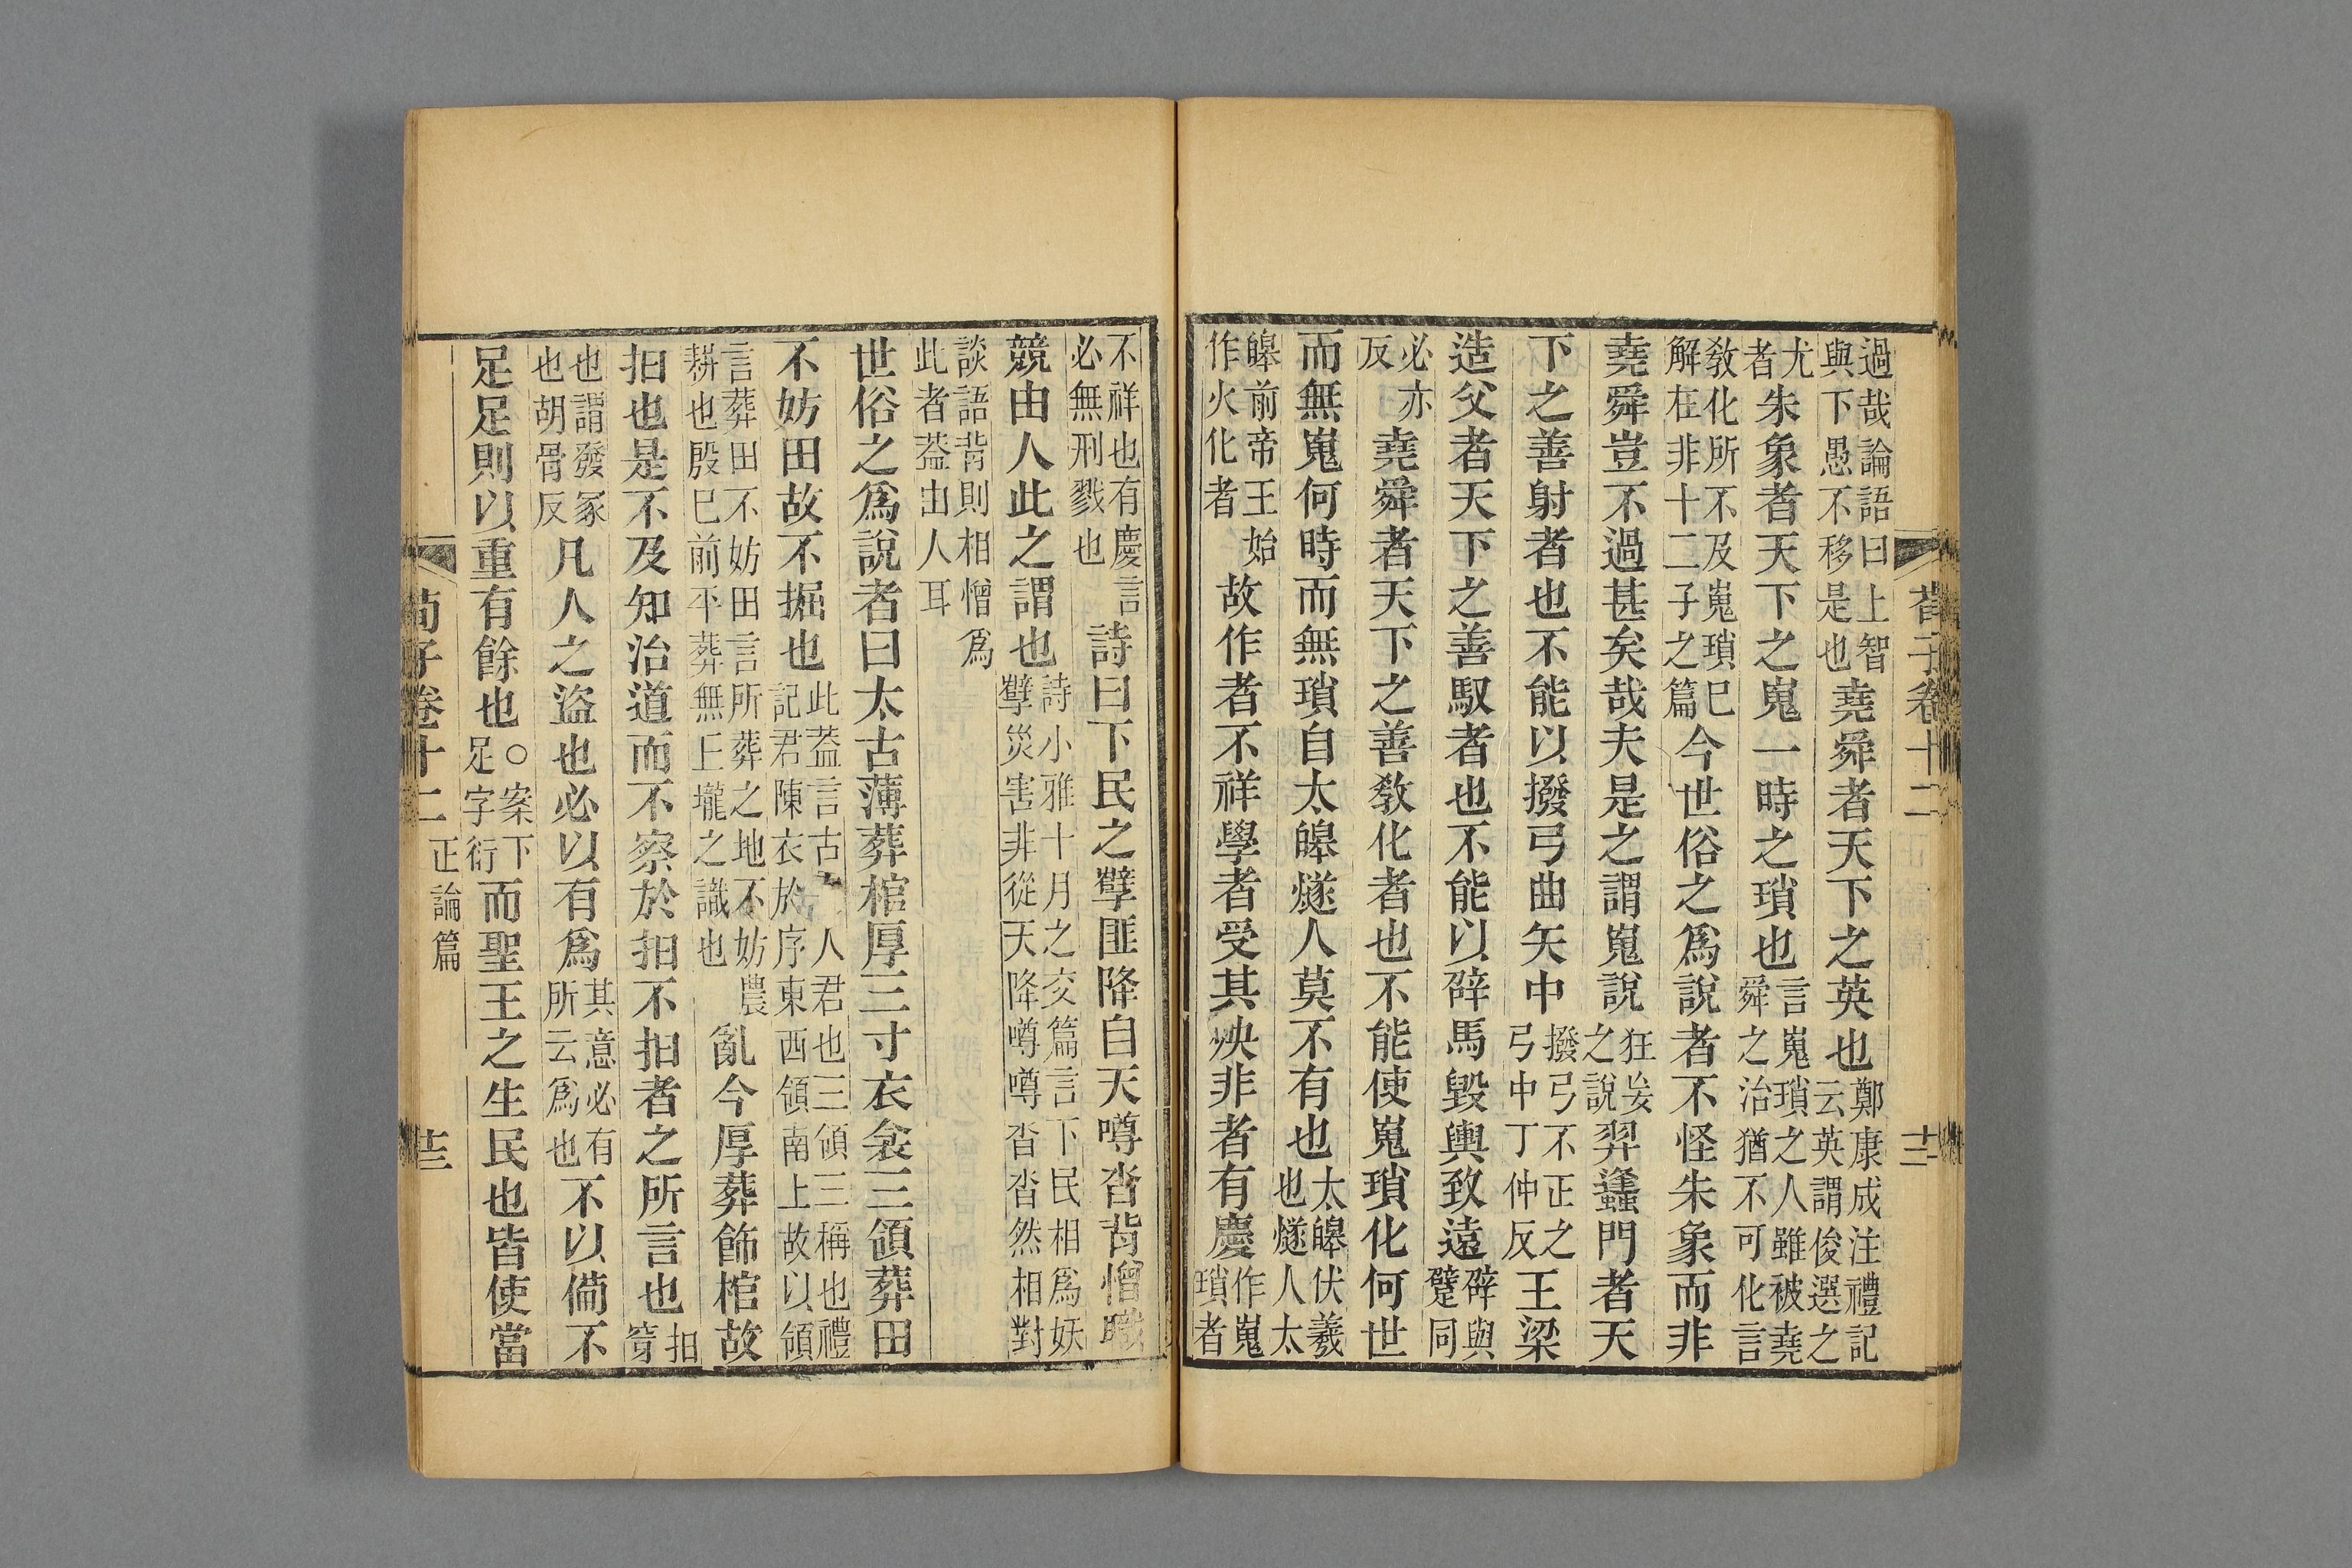 過哉論語曰上智與下愚不移是也堯舜者天下之英也鄭康成注禮記云英謂俊選之
尤者朱象者天下之嵬一時之瑣也言嵬瑣之人雖被堯舜之治猶不可化言
敎化所不及嵬瑣已解在非十二子之篇今世俗之爲說者不怪朱象而非
堯舜豈不過甚矣哉夫是之謂嵬說狂妄之說羿蠭門者天
下之善射者也不能以撥弓曲矢中撥弓不正之弓中丁仲反王梁
造父者天下之善馭者也不能以辟馬毀輿致遠辟與躄同
必亦反堯舜者天下之善敎化者也不能使嵬瑣化何世
而無嵬何時而無瑣自太皞燧人莫不有也太皞伏羲也燧人太
皞前帝王始作火化者故作者不祥學者受其殃非者有慶作嵬瑣者
荀子卷十二
十三
不祥也有慶言必無刑戮也詩曰下民之孼匪降自天噂沓背憎職
競由人此之謂也詩小雅十月之交篇言下民相爲妖孼災害非從天降噂噂沓沓然相對
談語背則相憎爲此者葢由人耳
世俗之爲說者曰太古薄葬棺厚三寸衣衾三領葬田
不妨田故不掘也此葢言古人君也三領三稱也禮記君陳衣於序東西領南上故以領
言葬田不妨田言所葬之地不妨農耕也殷已前平葬無丘壠之識也亂今厚葬飾棺故
抇也是不及知治道而不察於抇不抇者之所言也抇穿
也謂發冢也胡骨反凡人之盜也必以有爲其意必有所云爲也不以備不
足足則以重有餘也○案下足字衍而聖王之生民也皆使當
荀子卷十二 正論篇
十三